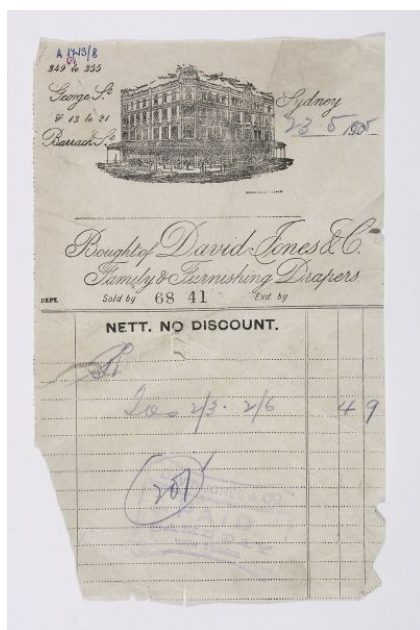 349 to 355
George St.
& 13 to 21
Barrack St.
Sydney
23 5 1905
Bought of David Jones & Co.
Family & Furnishing Drapers.
DEPT. Sold by 68 41 Exd. by
NETT. NO DISCOUNT.
2/3. 2/6 4 9
207
& CO
PAID